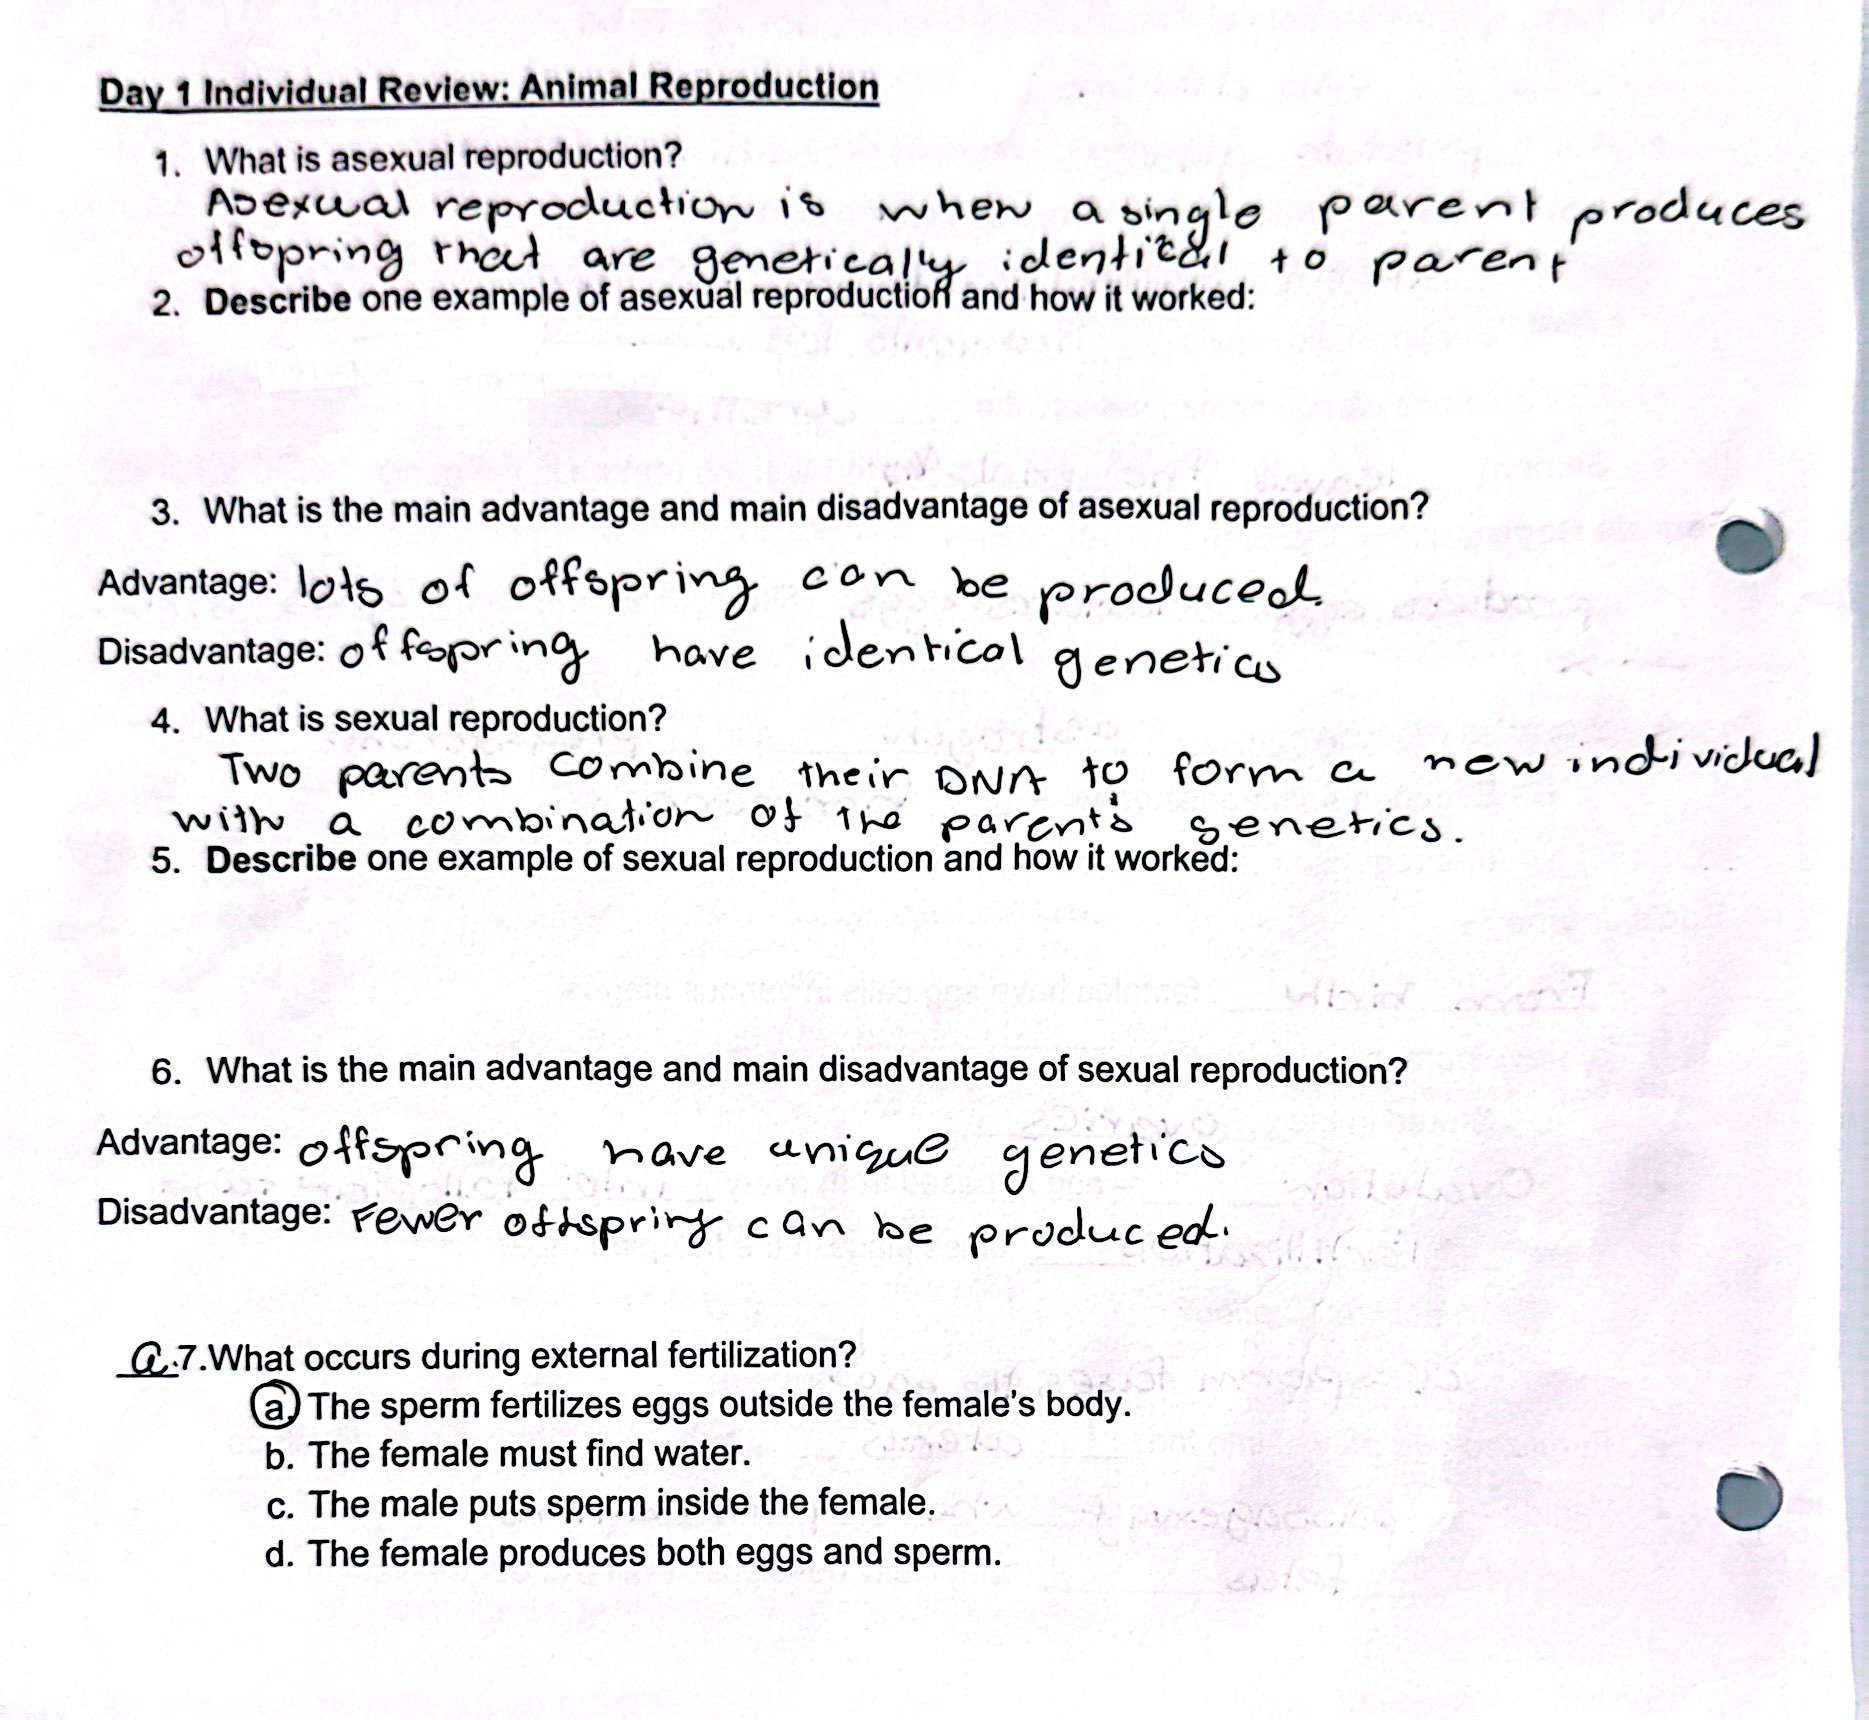 Day 1 Individual Review: Animal Reproduction
1. What is asexual reproduction?
Asexual reproduction is when a single parent produces
offspring that are genetically identical to parent
2. Describe one example of asexual reproduction and how it worked:
3. What is the main advantage and main disadvantage of asexual reproduction?
Advantage: lots of offspring can be produced.
Disadvantage: offspring have identical genetics
4. What is sexual reproduction?
Two parents combine their DNA to form a new individual
with a combination of the parent's genetics.
5. Describe one example of sexual reproduction and how it worked:
6. What is the main advantage and main disadvantage of sexual reproduction?
Advantage: offspring have unique genetics
Disadvantage: Fewer offspring can be produced.
a.7.What occurs during external fertilization?
a. The sperm fertilizes eggs outside the female's body.
b. The female must find water.
c. The male puts sperm inside the female.
d. The female produces both eggs and sperm.